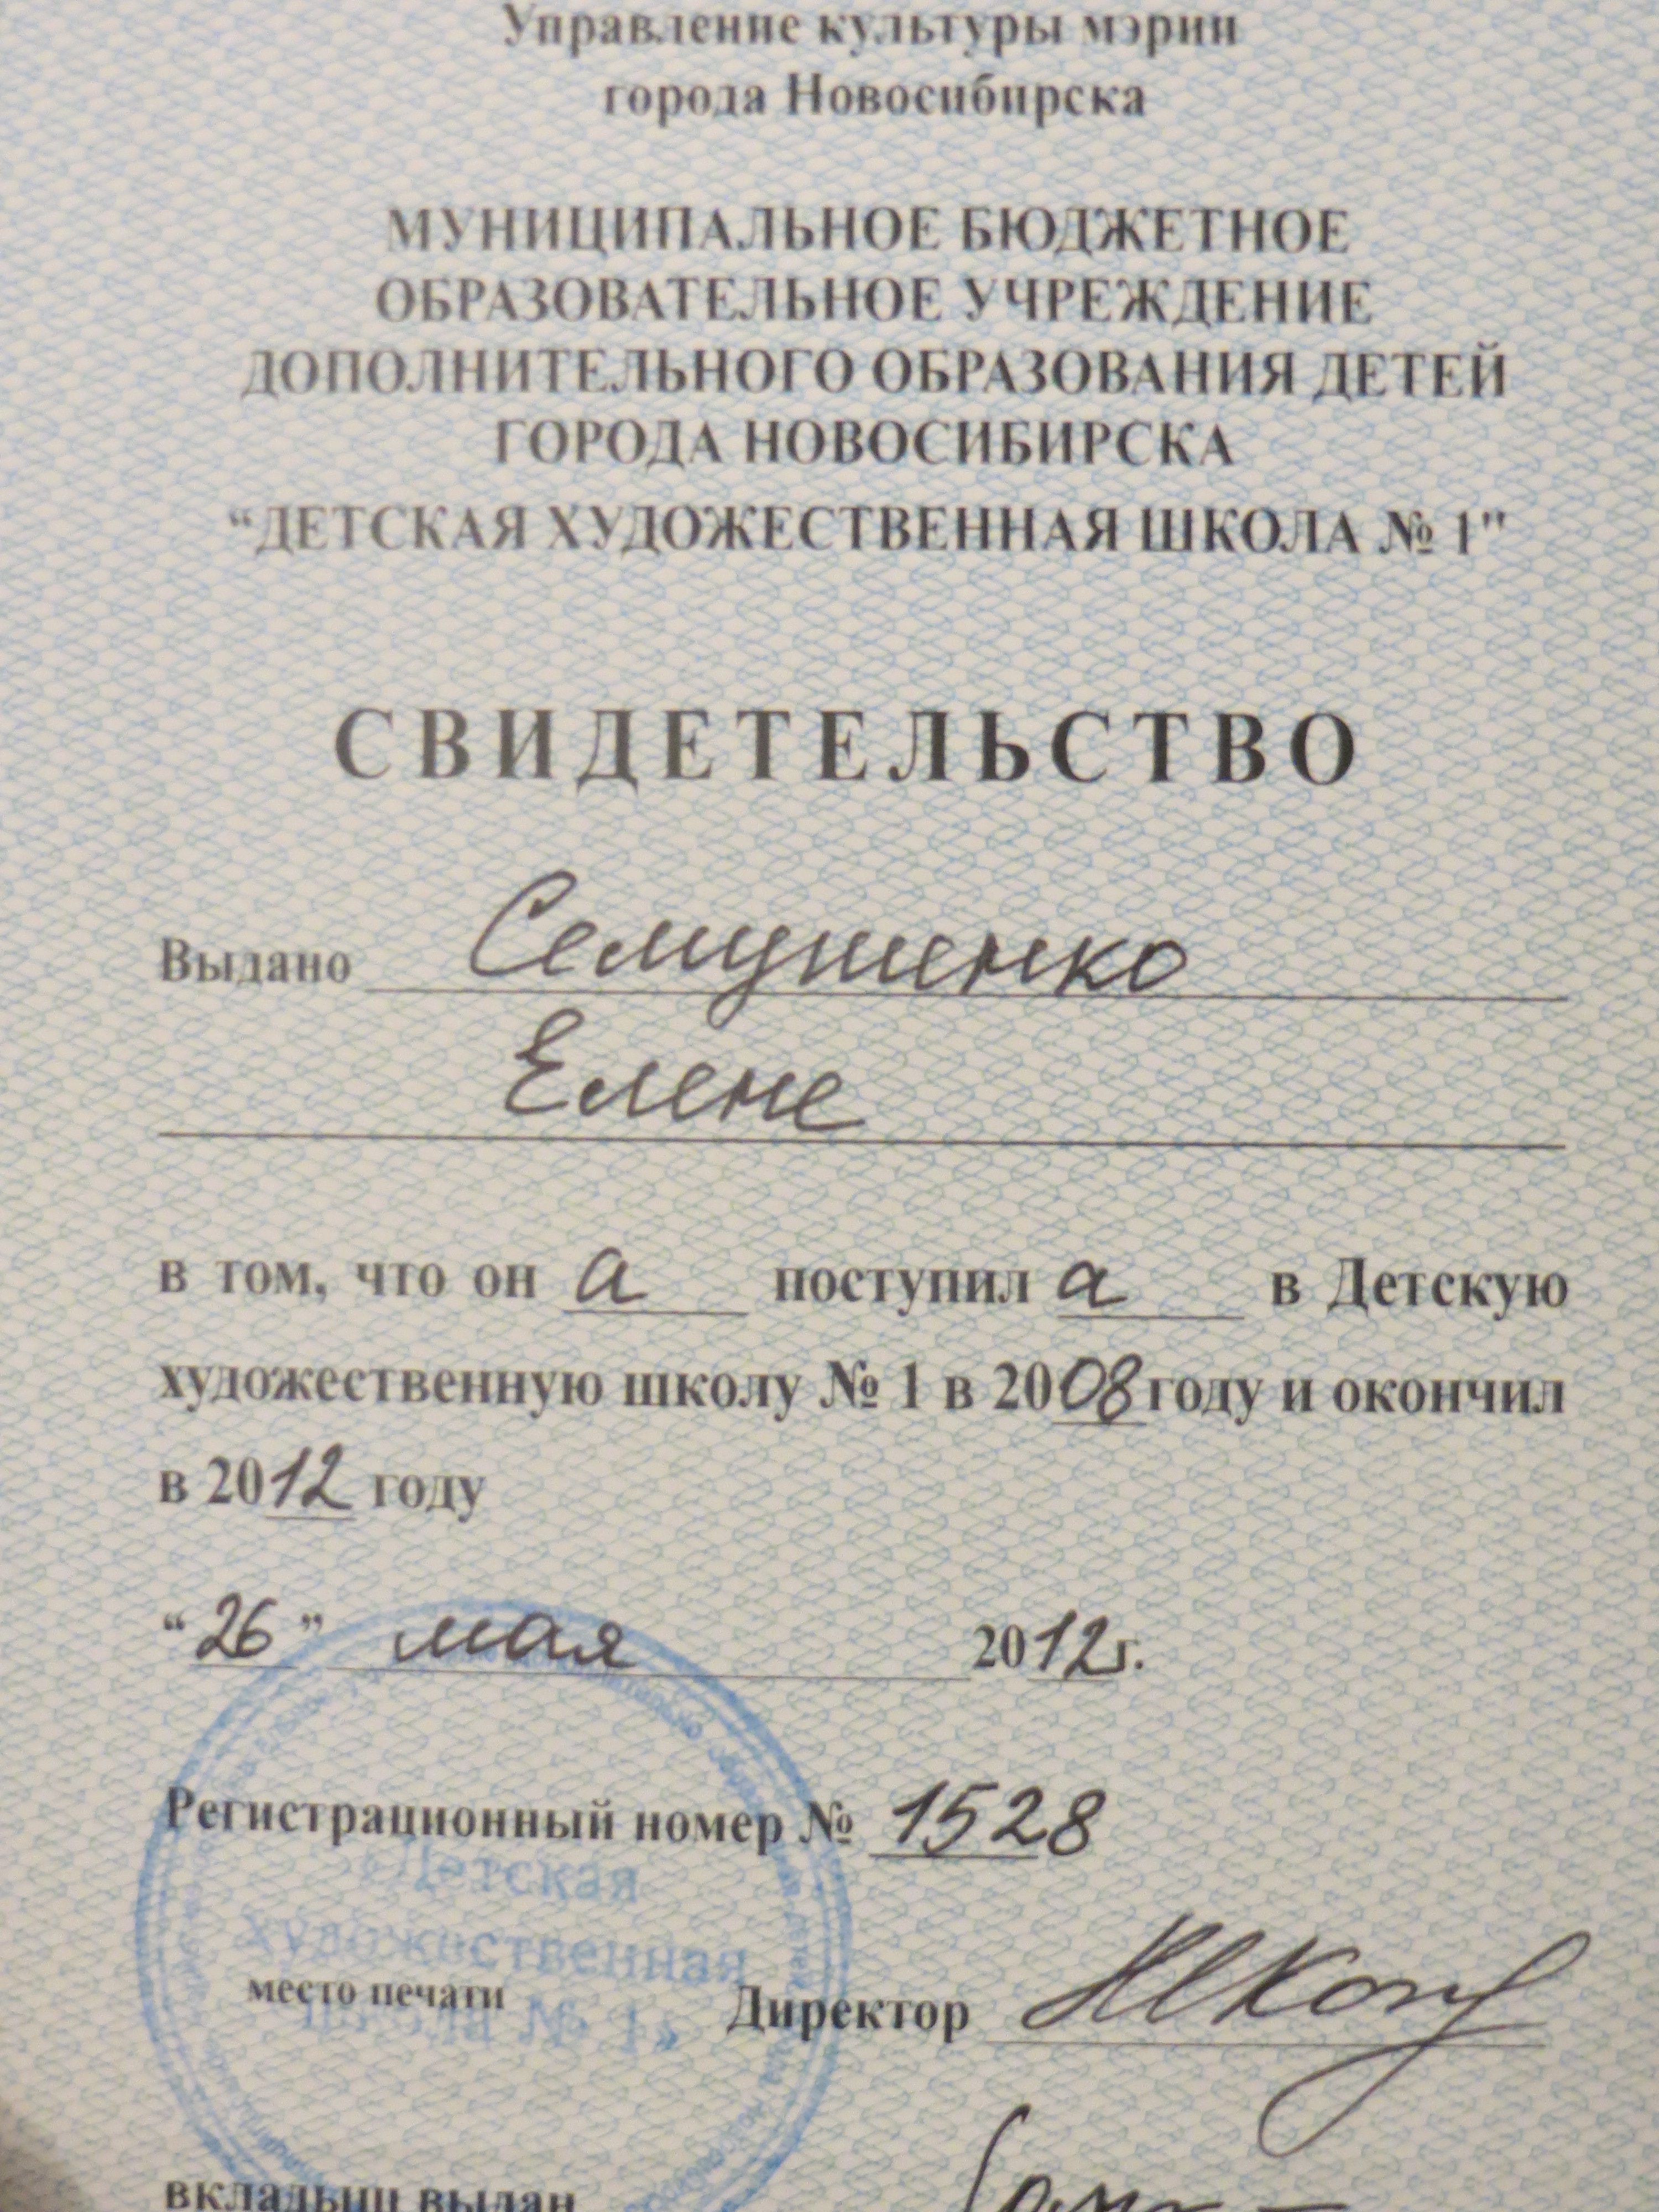 Управление культуры мэрии
города Новосибирска
МУНИЦИПАЛЬНОЕ БЮДЖЕТНОЕ
ОБРАЗОВАТЕЛЬНОЕ УЧРЕЖДЕНИЕ
ДОПОЛНИТЕЛЬНОГО ОБРАЗОВАНИЯ ДЕТЕЙ
ГОРОДА НОВОСИБИРСКА
“ДЕТСКАЯ ХУДОЖЕСТВЕННАЯ ШКОЛА № 1"
СВИДЕТЕЛЬСТВО
Выдано Семушенко
Елене
в том, что он а поступил а в Детскую
художественную школу № 1 в 2008 году и окончил
в 2012 году
“26” мая 2012 г.
Регистрационный номер № 1528
Детская
художественная
школа № 1»
место печати Директор
вкладыш выдан